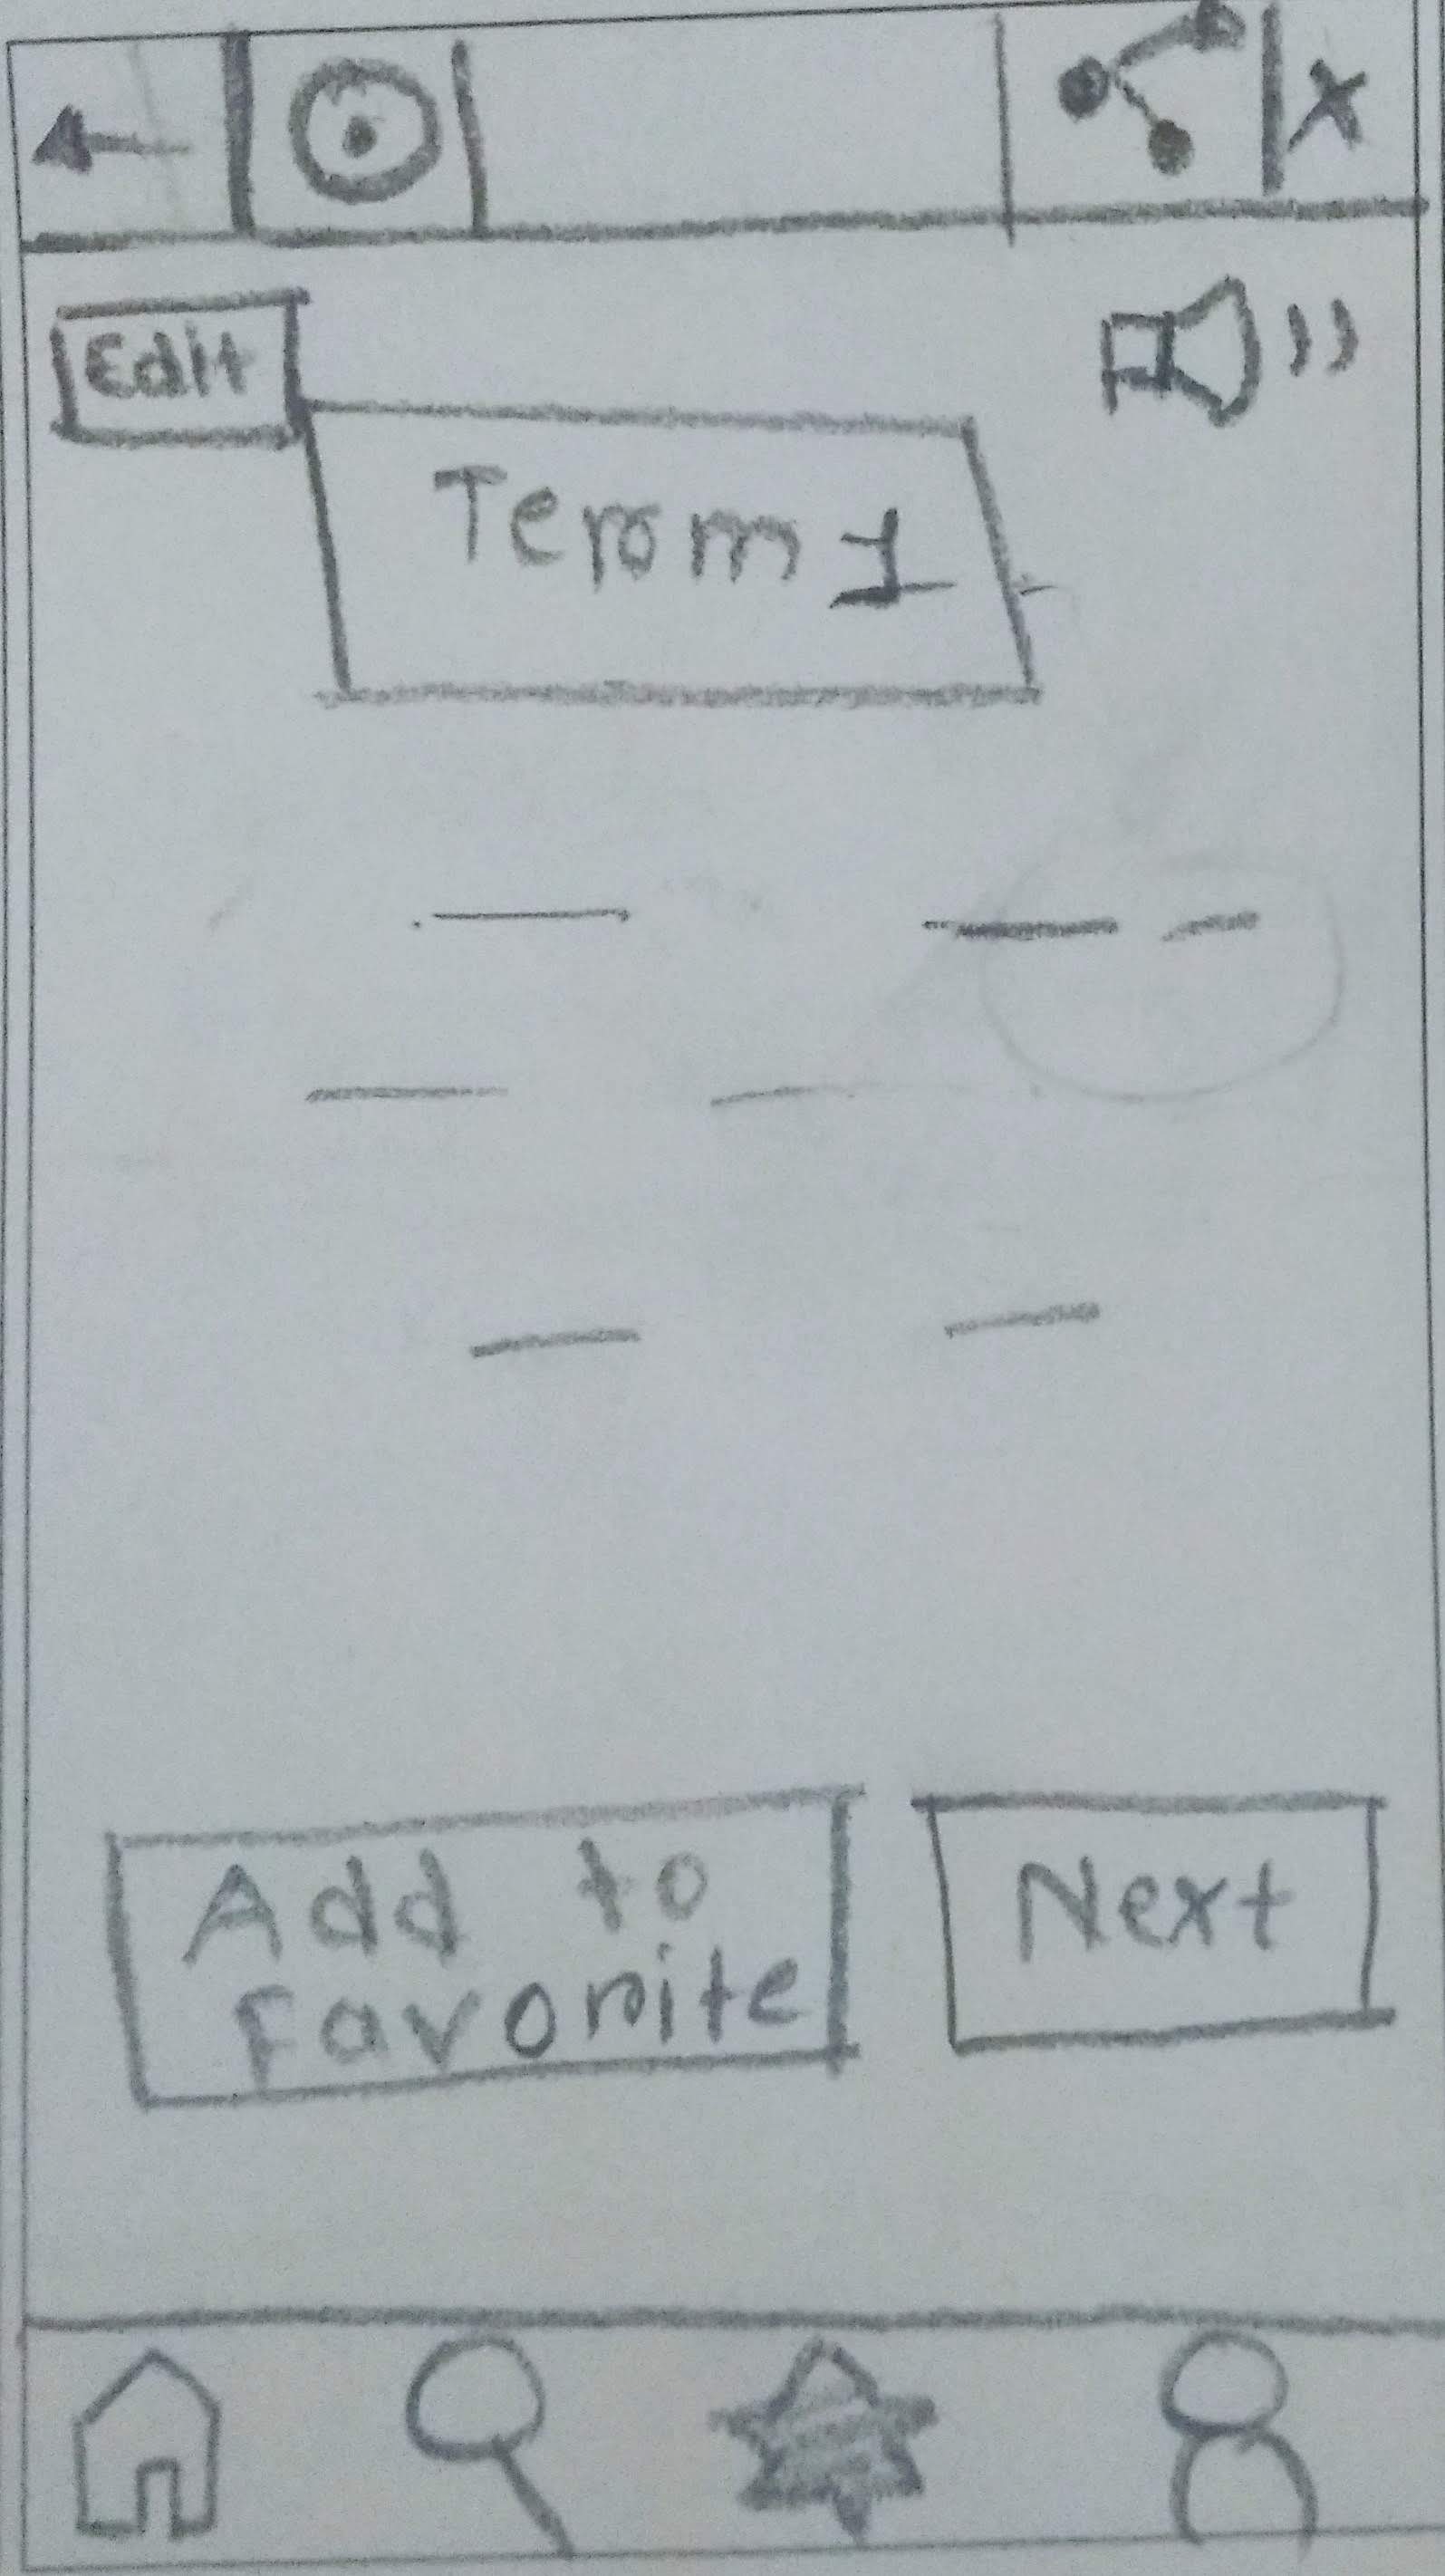 Edit
Term 1
Add to
Favorite
Next